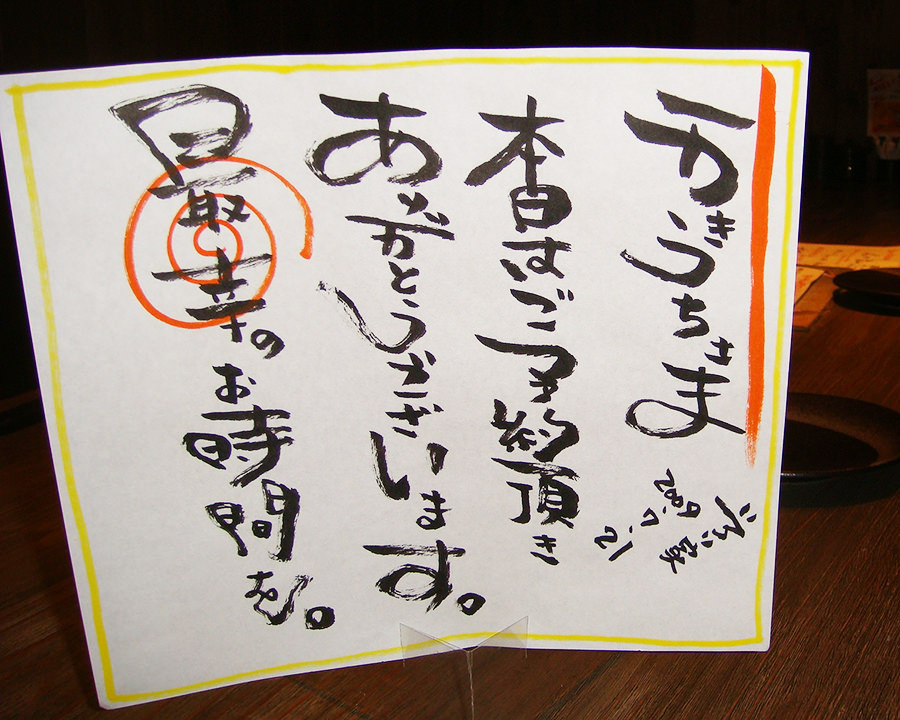 かきうちさま
本日はご予約頂き
ありがとうございます。
最幸のお時間を。
2009.7.21